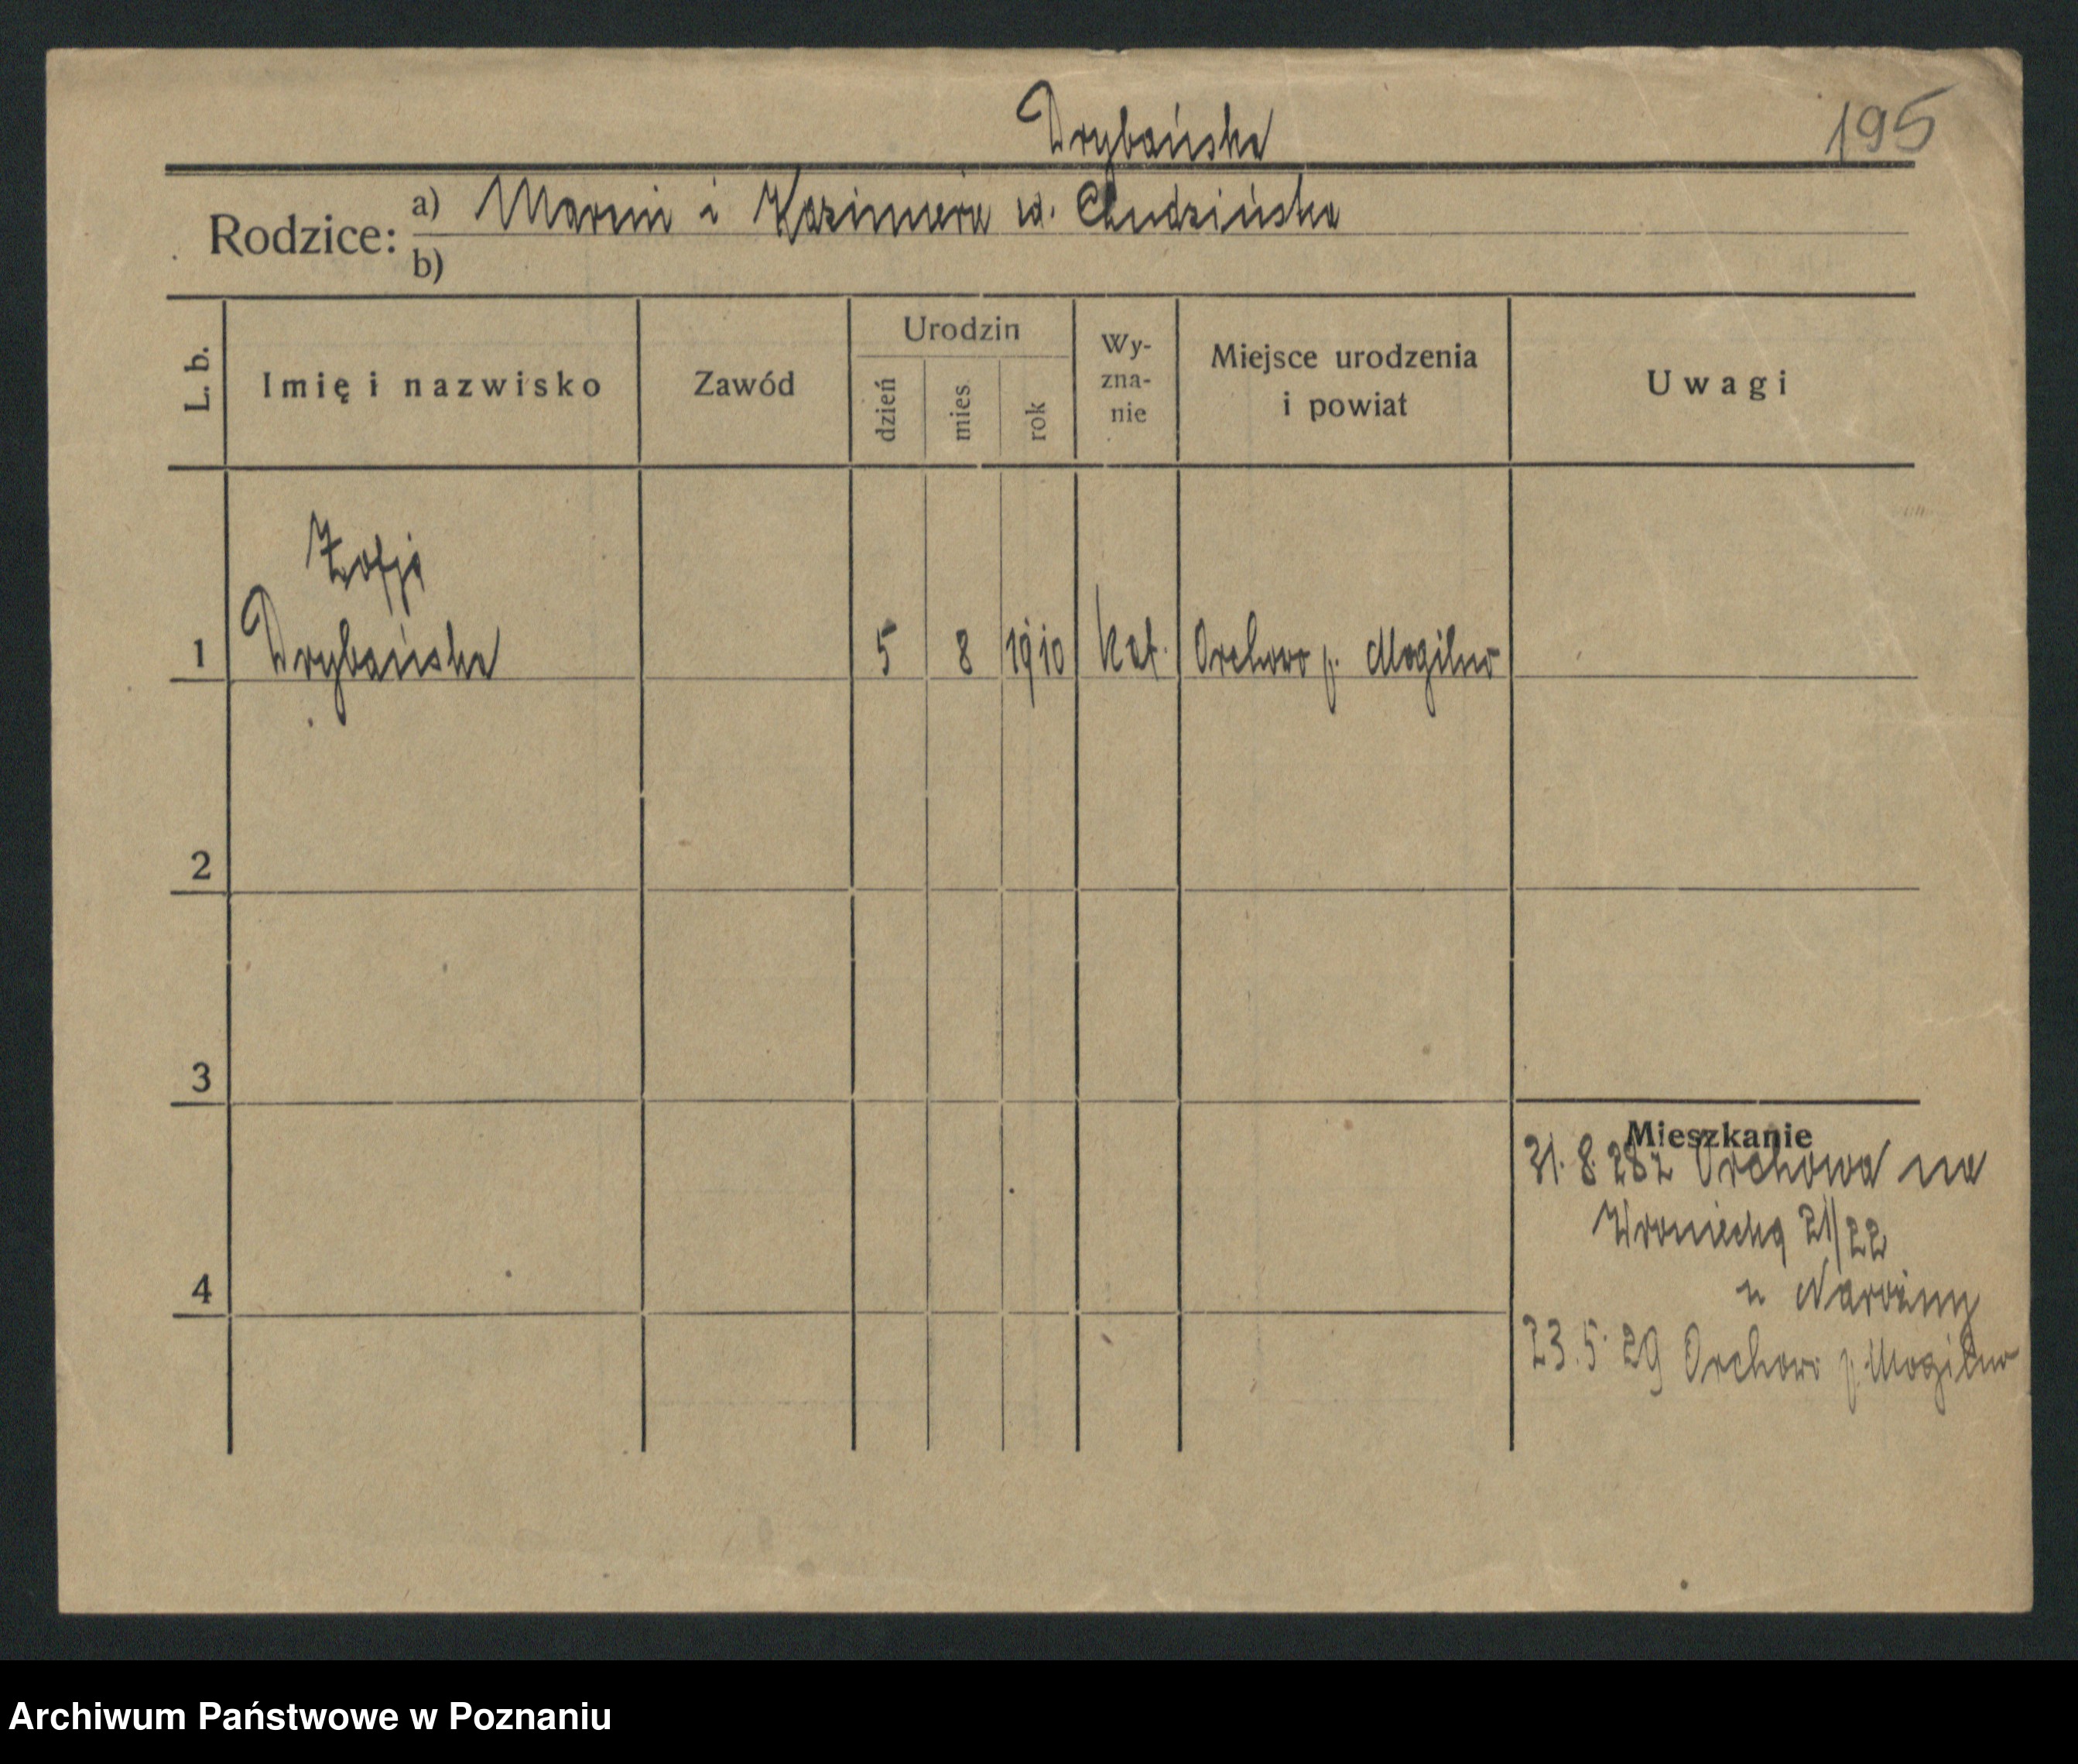 Drybańska
195
Rodzice: a) Marcin i Kazimiera ur. Chudzińska
b)
L. b.
Imię i nazwisko
Zawód
Urodzin
dzień
mies
rok
Wy-
zna-
nie
Miejsce urodzenia
i powiat
Uwagi
Zofja
1 Drybańska 5 8 1910 kat. Orchowo p. Mogilno
2
3
Mieszkanie
31.8.28 z Orchowa na
Wroniecką 21/22
u
4
23.5.29 Orchowo p. Mogilno
Archiwum Państwowe w Poznaniu